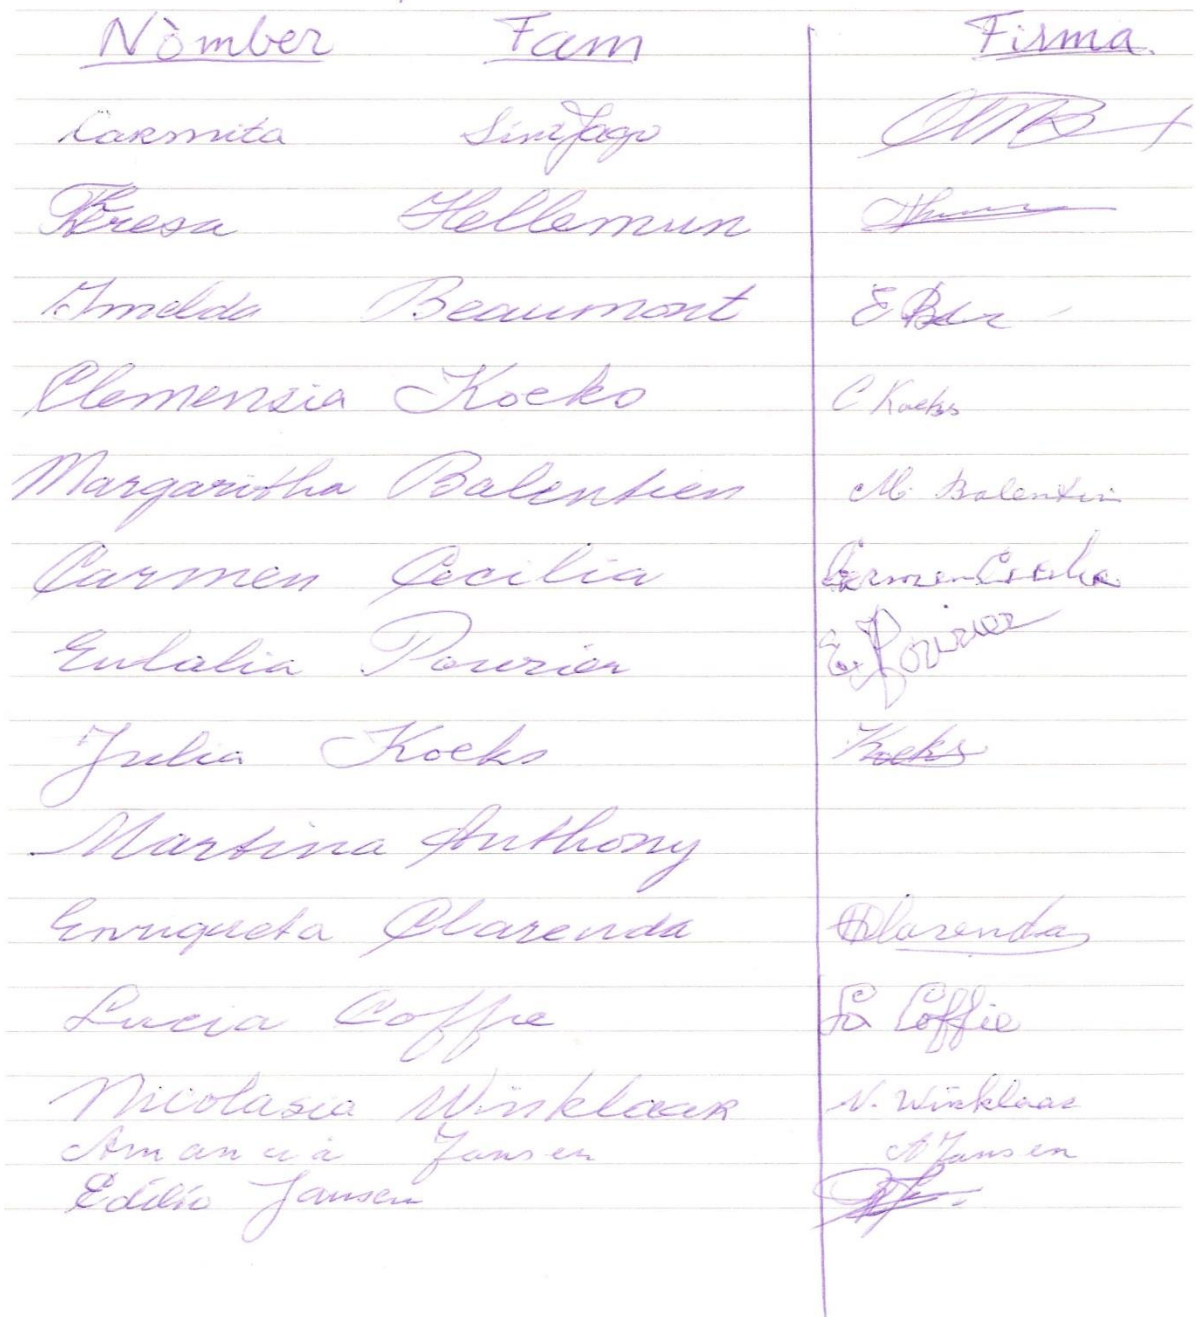 Nòmber Fam Firma.
Carmita
Teresa Hellemun
Imelda Beaumont
Clemensia Koeks C Koeks
Margaritha Balentien M. Balentin
Carmen Cecilia Carmen Cecilia
Eulalia Pourier E. Pourier
Julia Koeks Koeks
Martina Anthony
Enriqueta Clarenda Clarenda
Lucia Coffie Coffie
Nicolasia Winklaar N. Winklaar
Amancia Jansen A Jansen
Edilio Jansen